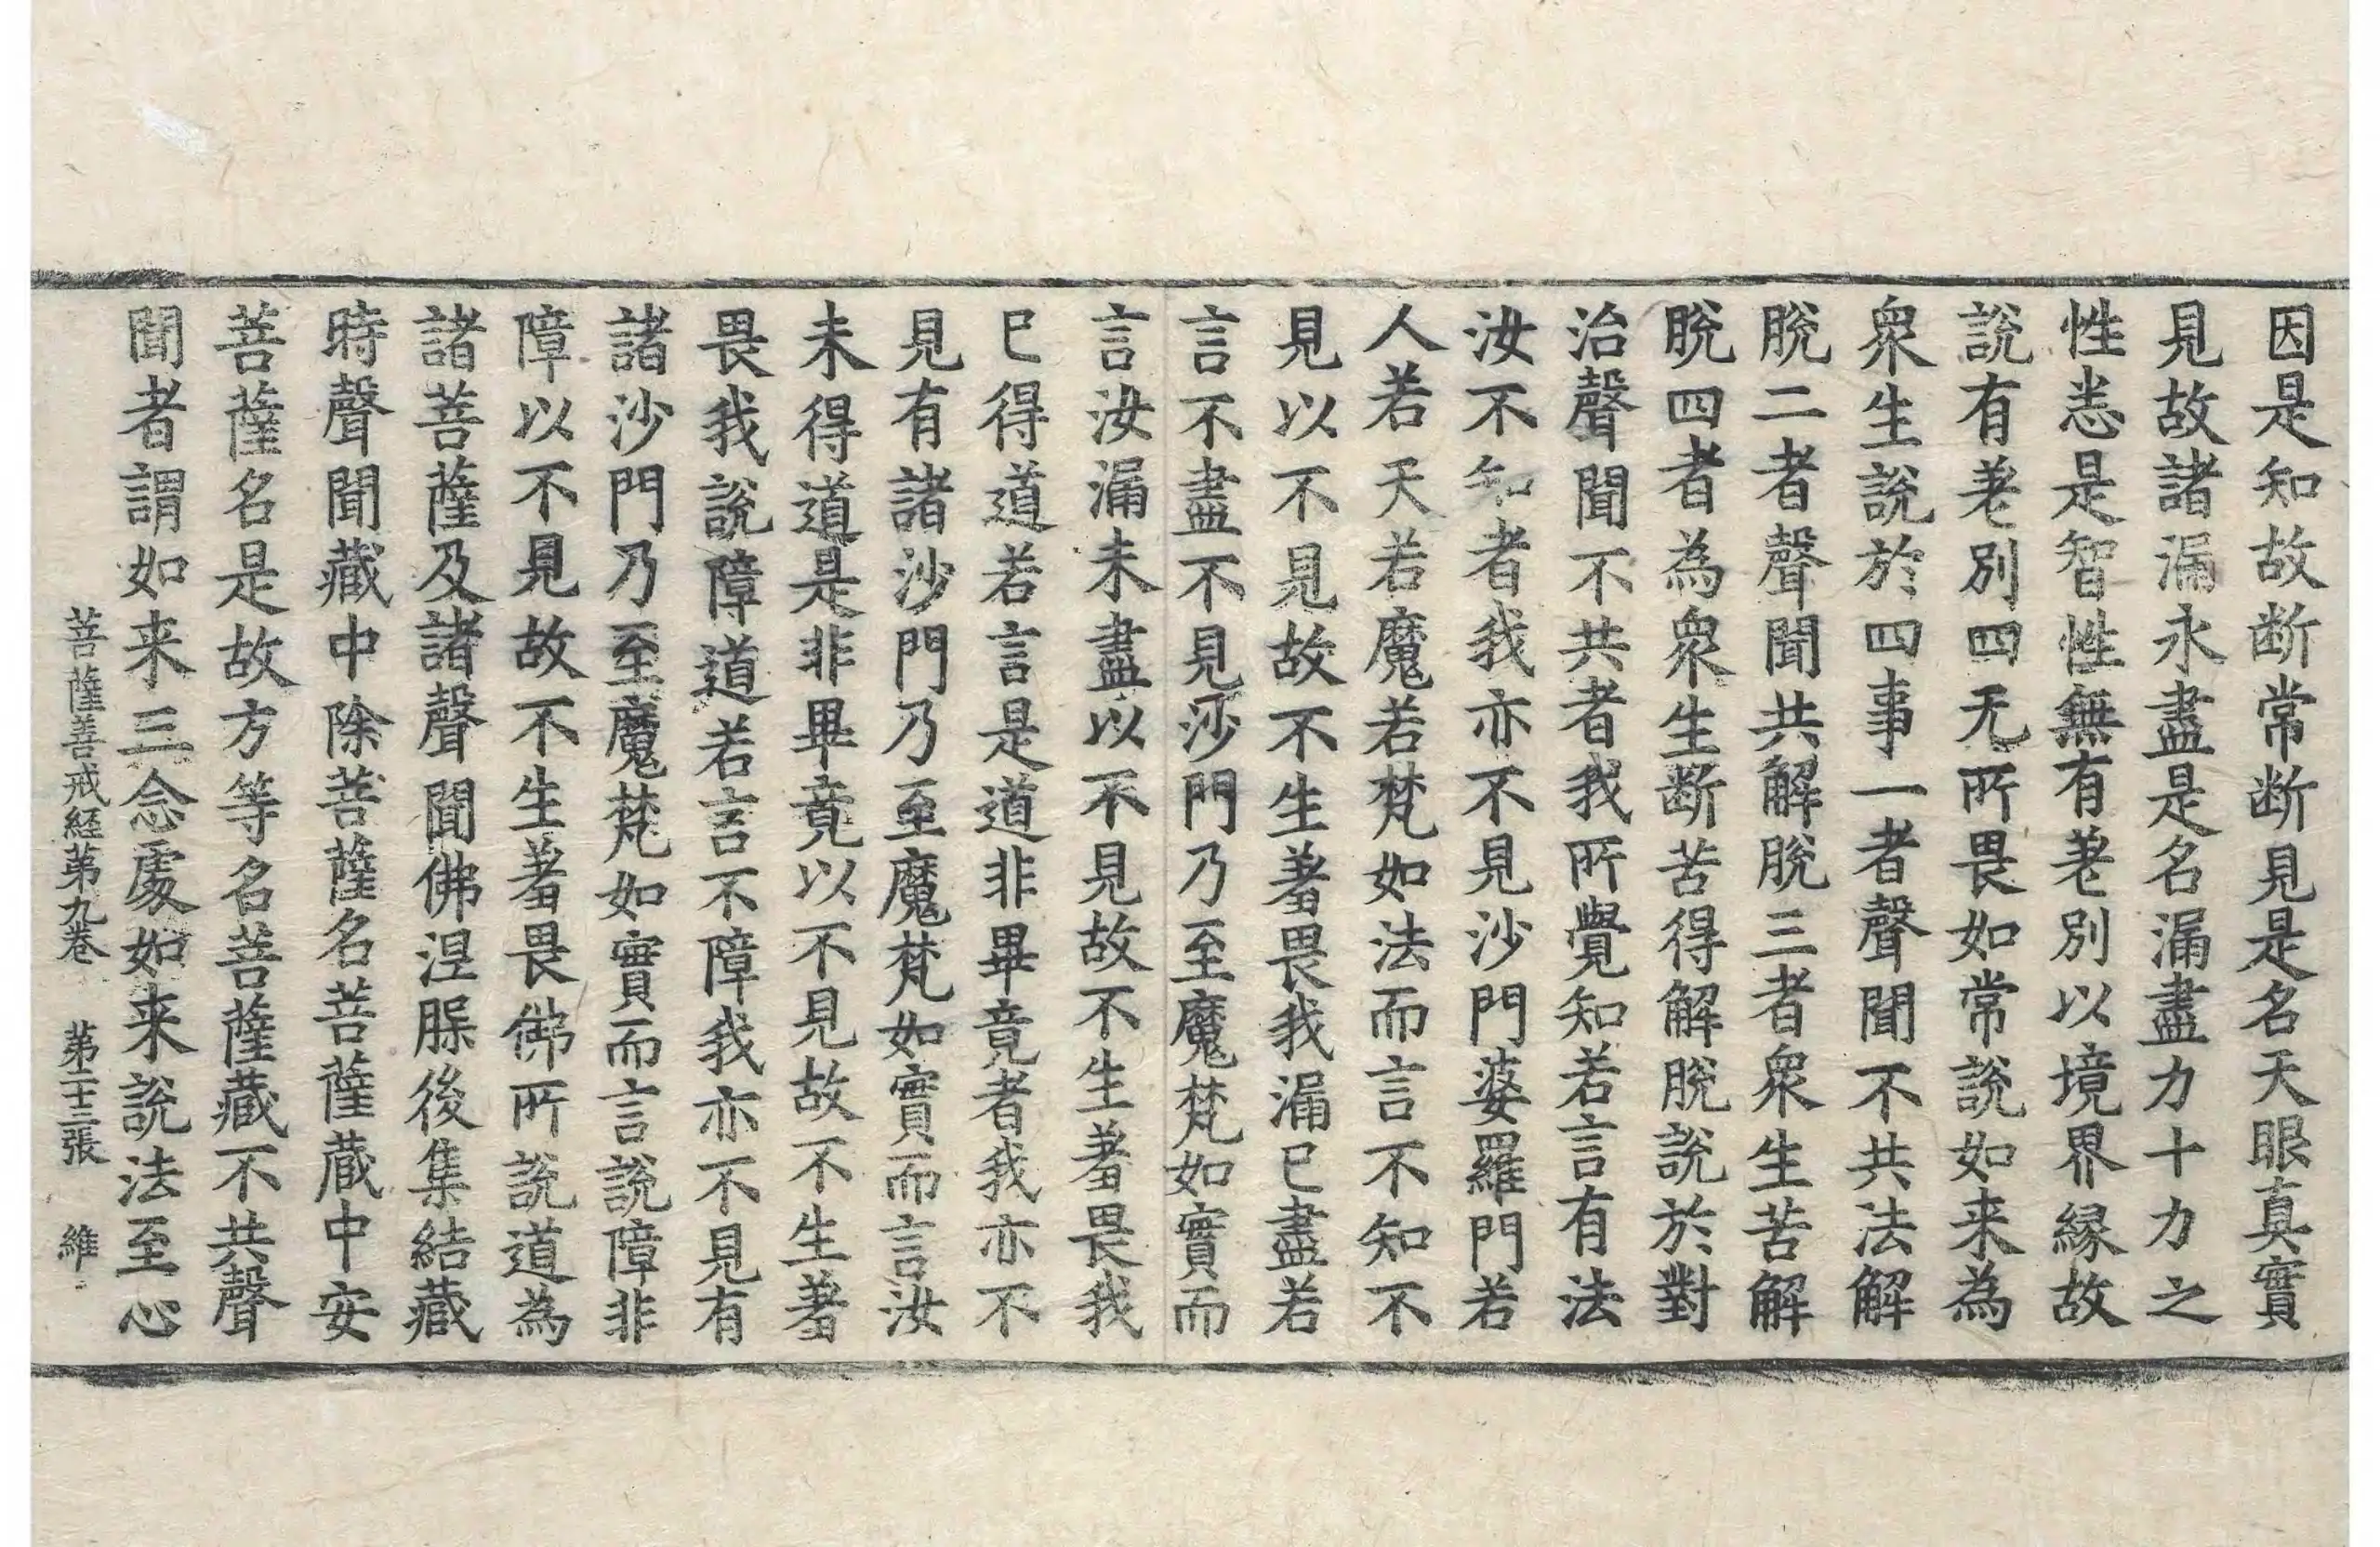 因是知故断常断見是名天眼真實
見故諸漏永盡是名漏盡力十力之
性恙是智性性無有差別以境界縁故
說有差別四无所畏如常說如来為
衆生說於四事一者聲聞不共法解
脫二者聲聞共解脫三者衆生苦解
脫四者為衆生断苦得解脫說於對
治聲聞不共者我所覺知若言有法
汝不知者我亦不見沙門婆羅門若
人若天若魔若梵如法而言不知不
見以不見故不生羞畏我漏已盡若
言不盡不見沙門乃至魔梵如實而
言汝漏未盡以不見故不生羞畏我
已得道若言是道非畢竟者我亦不
見有諸沙門乃至魔梵如實而言汝
未得道是非畢竟以不見故不生羞
畏我說障道若言不障我亦不見有
諸沙門乃至魔梵如實而言說障非
障以不見故不生羞畏佛所說道為
諸菩薩及諸聲聞佛涅槃後集結藏
時聲聞藏中除菩薩名菩薩蔵中安
菩薩名是故方等名菩薩藏不共聲
聞者謂如来三念處如来說法至心
菩薩善戒経第九卷　第二十三張　維